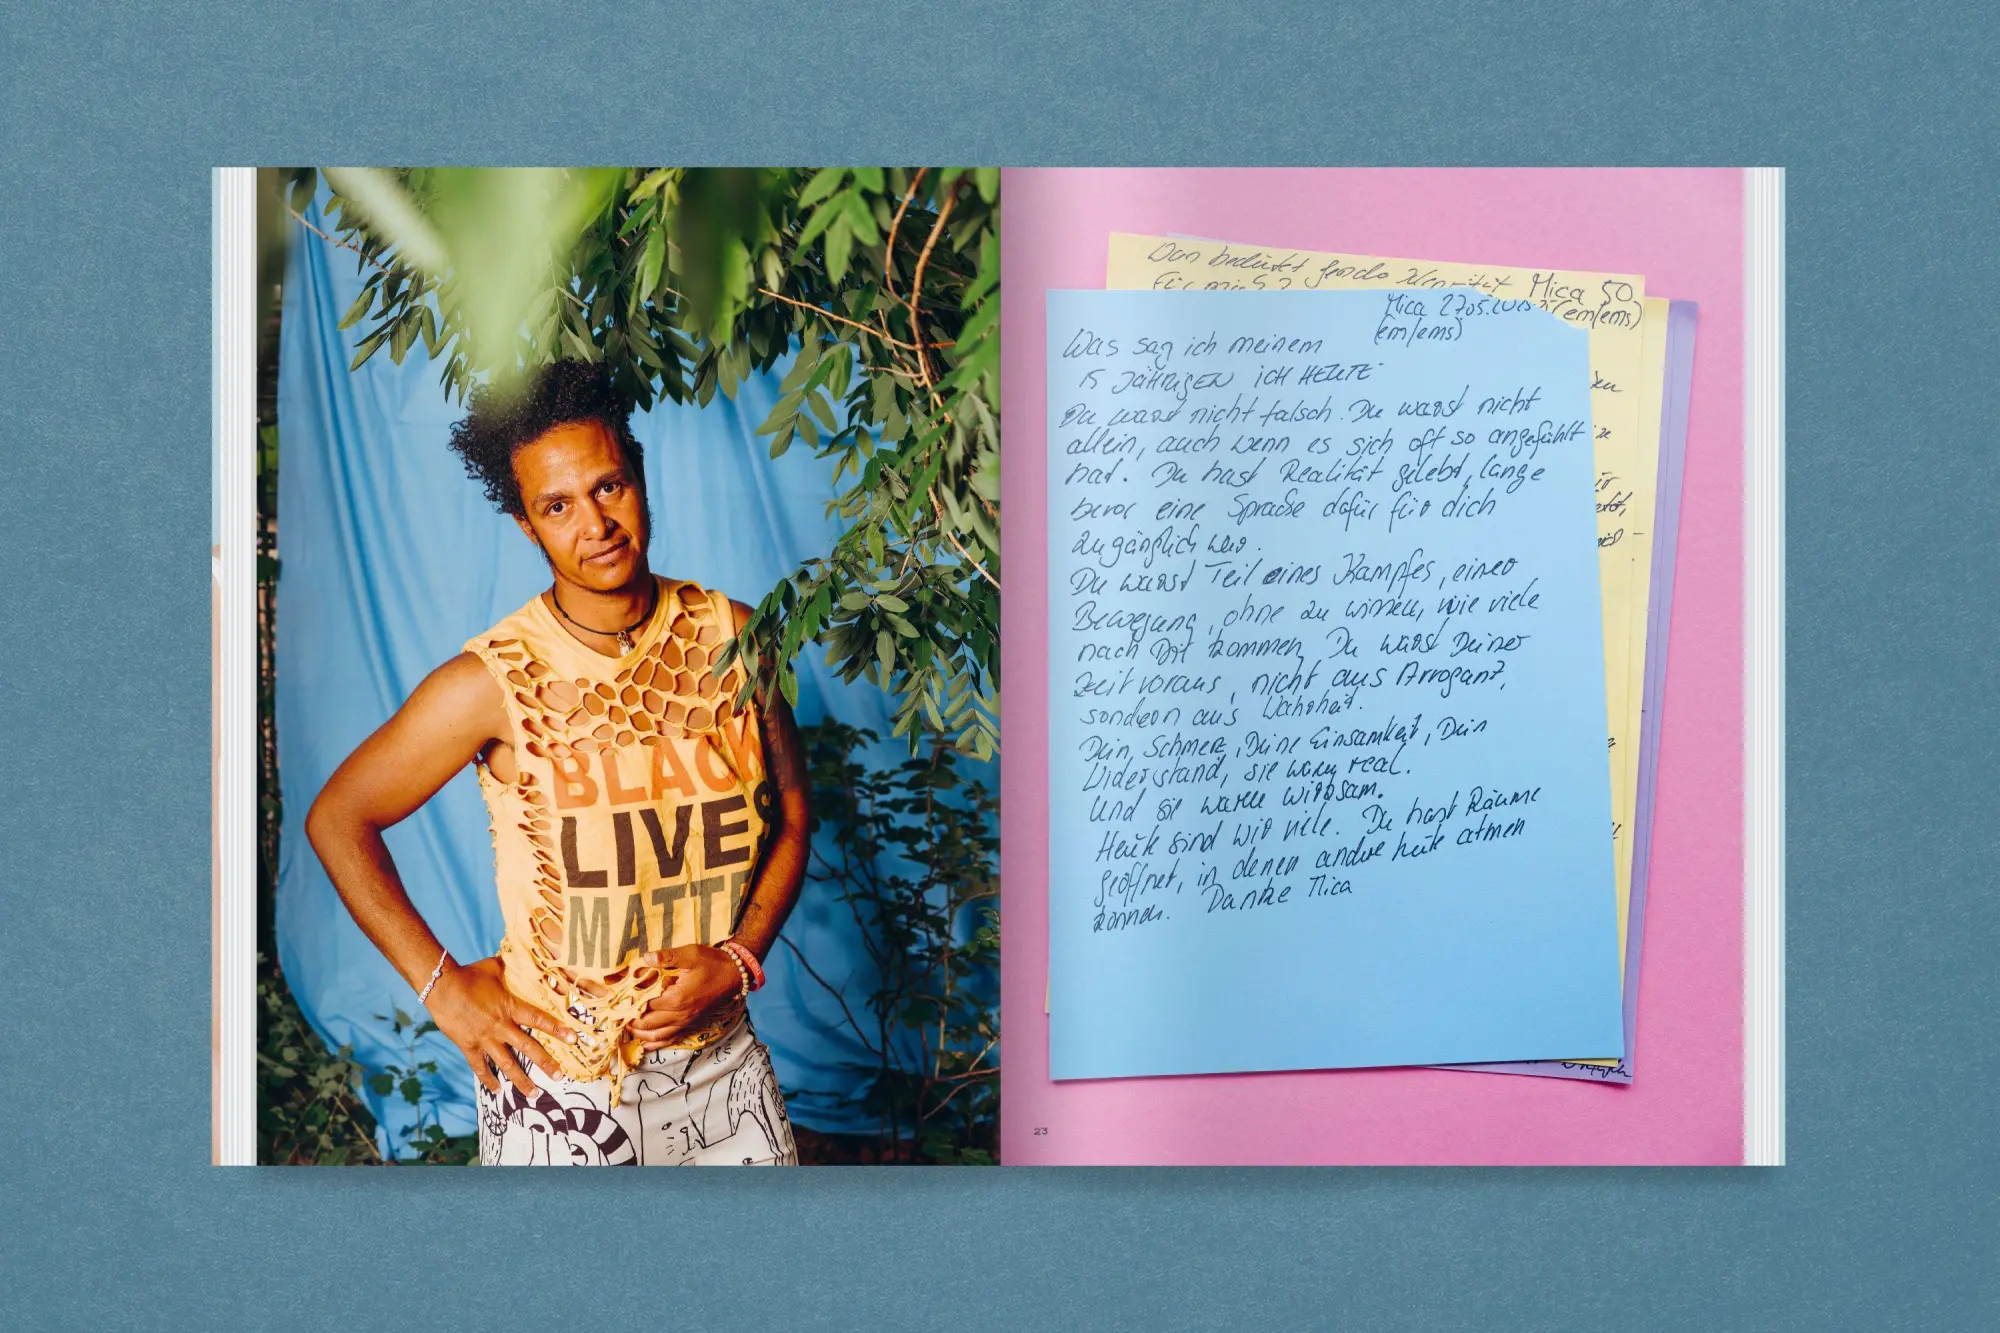 BLACK
LIVES
MATT
Was bedeutet Gender Identität Mica 50
Für mich? (em/ems)
Mica 27.05.2025
(em/ems)
Was sag ich meinem
15 JÄHRIGEN ICH HEUTE
Du warst nicht falsch. Du warst nicht
allein, auch wenn es sich oft so angefühlt
hat. Du hast Realität gelebt, lange
bevor eine Sprache dafür für dich
zugänglich war.
Du warst Teil eines Kampfes, einer
Bewegung, ohne zu wissen, wie viele
nach Dir kommen. Du warst Deiner
Zeit voraus, nicht aus Arroganz,
sondern aus Wahrheit.
Dein Schmerz, Deine Einsamkeit, Dein
Widerstand, sie waren real.
Und sie waren wirksam.
Heute sind wir viele. Du hast Räume
geöffnet, in denen andere heute atmen
können. Danke Mica
23